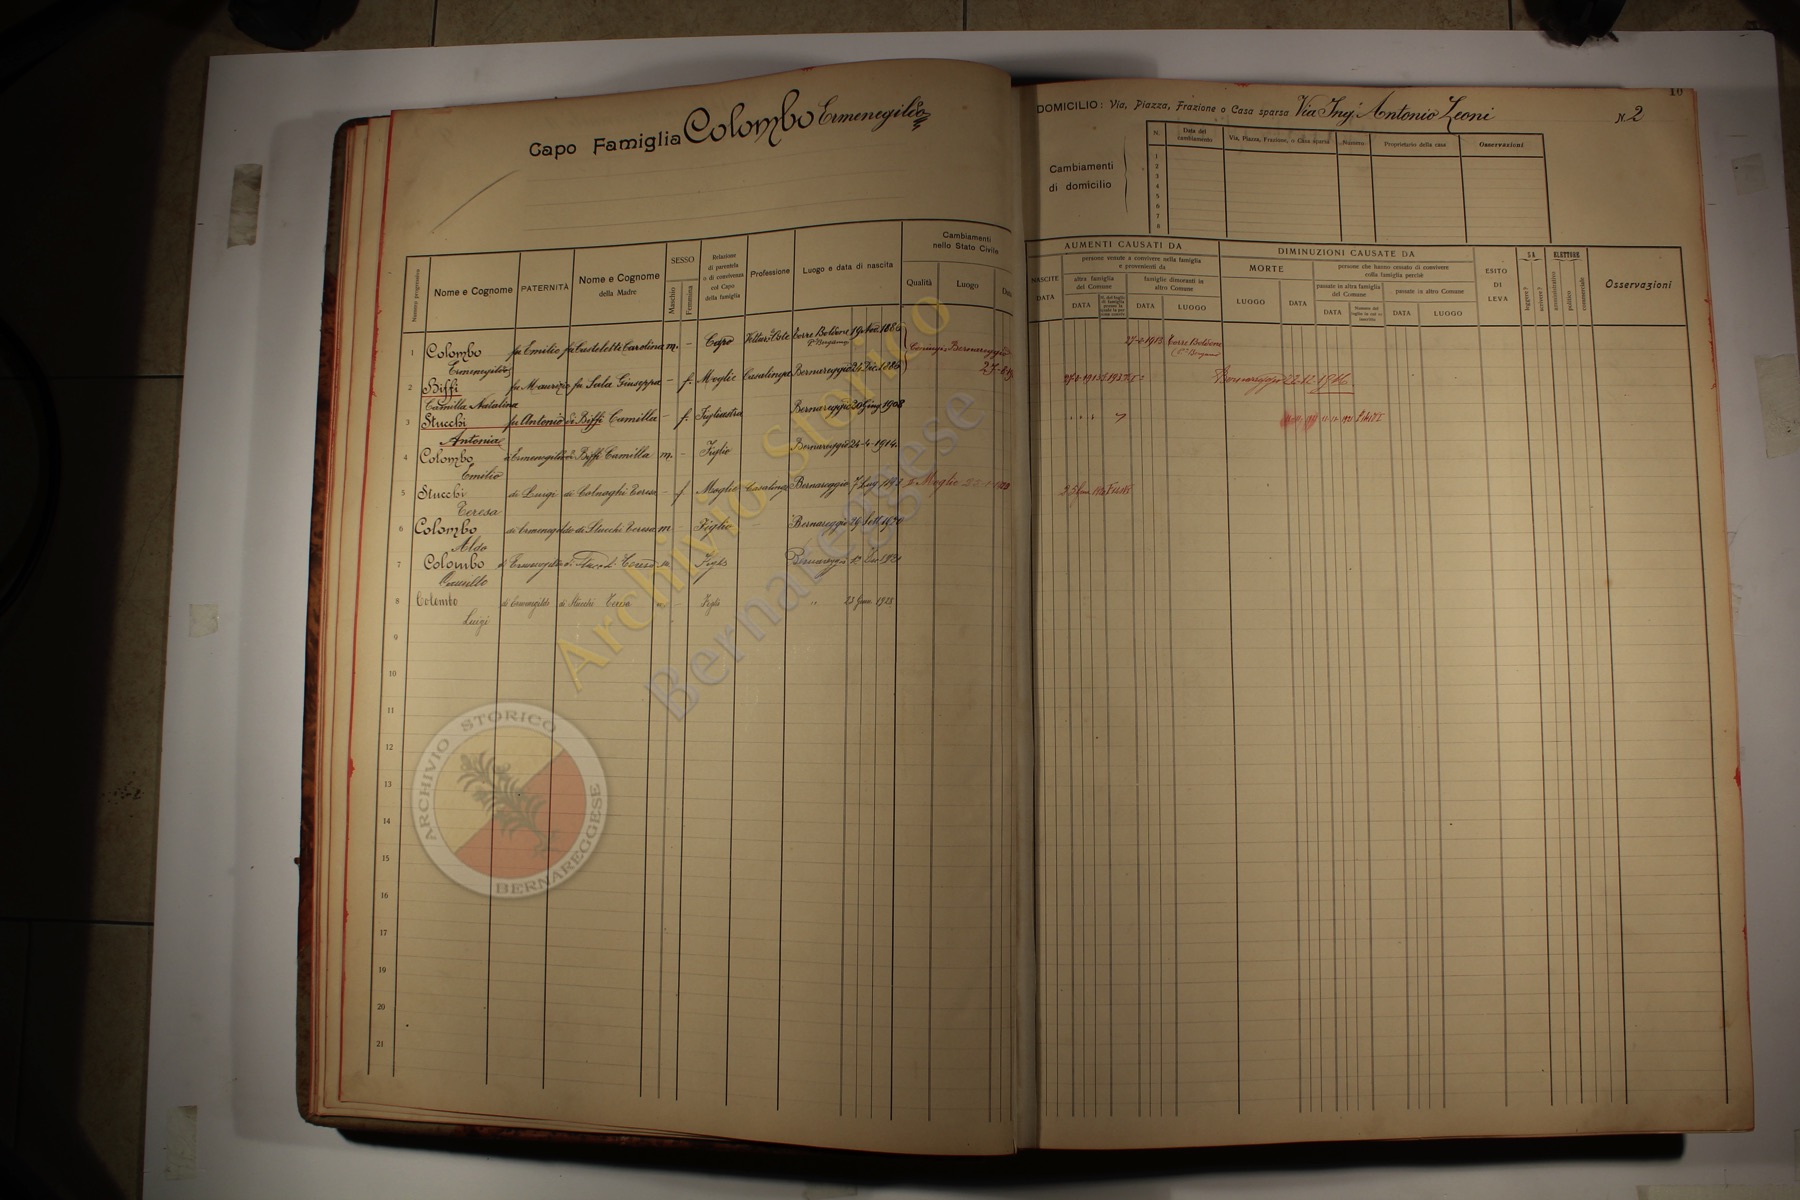 Capo Famiglia Colombo Ermenegildo
Numero progressivo
Nome e Cognome
PATERNITÀ
Nome e Cognome
della Madre
SESSO
Maschio
Femmina
Relazione
di parentela
o di convivenza
col Capo
della famiglia
Professione
Luogo e data di nascita
Cambiamenti
nello Stato Civile
Qualità
Luogo
Data
1 Colombo fu Emilio fu Carolina m. – Capo Torre Boldone 19 Nov.
Ermenegildo
2 Biffi fu Maurizio fu Sala Giuseppa – f. Moglie Casalinga Bernareggio 21 Dic. 1886 Coniugi Bernareggio
Camilla Natalina
3 Stucchi fu Antonio di Biffi Camilla – f. Figliastra Bernareggio 30 Giug. 1908
Antonia
4 Colombo di Ermenegildo di Biffi Camilla m. – Figlio Bernareggio 24-4-1914
Emilio
5 Stucchi di Luigi di Colnaghi Teresa – f Moglie Casalinga Bernareggio 7 Lug
Teresa
6 Colombo di Ermenegildo di Stucchi Teresa m – Figlio Bernareggio 29 Sett. 1920
Aldo
7 Colombo di Ermenegildo di Teresa m. Figlio Bernareggio
Camillo
8 Colombo di Ermenegildo di Stucchi Teresa m. Figlio " 23 Genn. 1925
Luigi
9
10
11
12
13
14
15
16
17
18
19
20
21
10
DOMICILIO: Via, Piazza, Frazione o Casa sparsa Via Ing. Antonio Leoni N. 2
Cambiamenti
di domicilio
N.
Data del
cambiamento
Via, Piazza, Frazione, o Casa sparsa
Numero
Proprietario della casa
Osservazioni
1
2
3
4
5
6
7
8
AUMENTI CAUSATI DA
NASCITE
DATA
persone venute a convivere nella famiglia
e provenienti da
altre famiglie
del Comune
DATA
famiglie dimoranti in
altro Comune
DATA
LUOGO
DIMINUZIONI CAUSATE DA
MORTE
LUOGO
DATA
persone che hanno cessato di convivere
colla famiglia perchè
passate in altra famiglia
del Comune
DATA
passate in altro Comune
DATA
LUOGO
ESITO
DI
LEVA
SA
leggere?
scrivere?
ELETTORE
amministrativo
politico
commerciale
Osservazioni
Torre Boldone
Bernareggio 22-12-1916
ARCHIVIO STORICO
BERNAREGGESE
Archivio Storico
Bernareggese